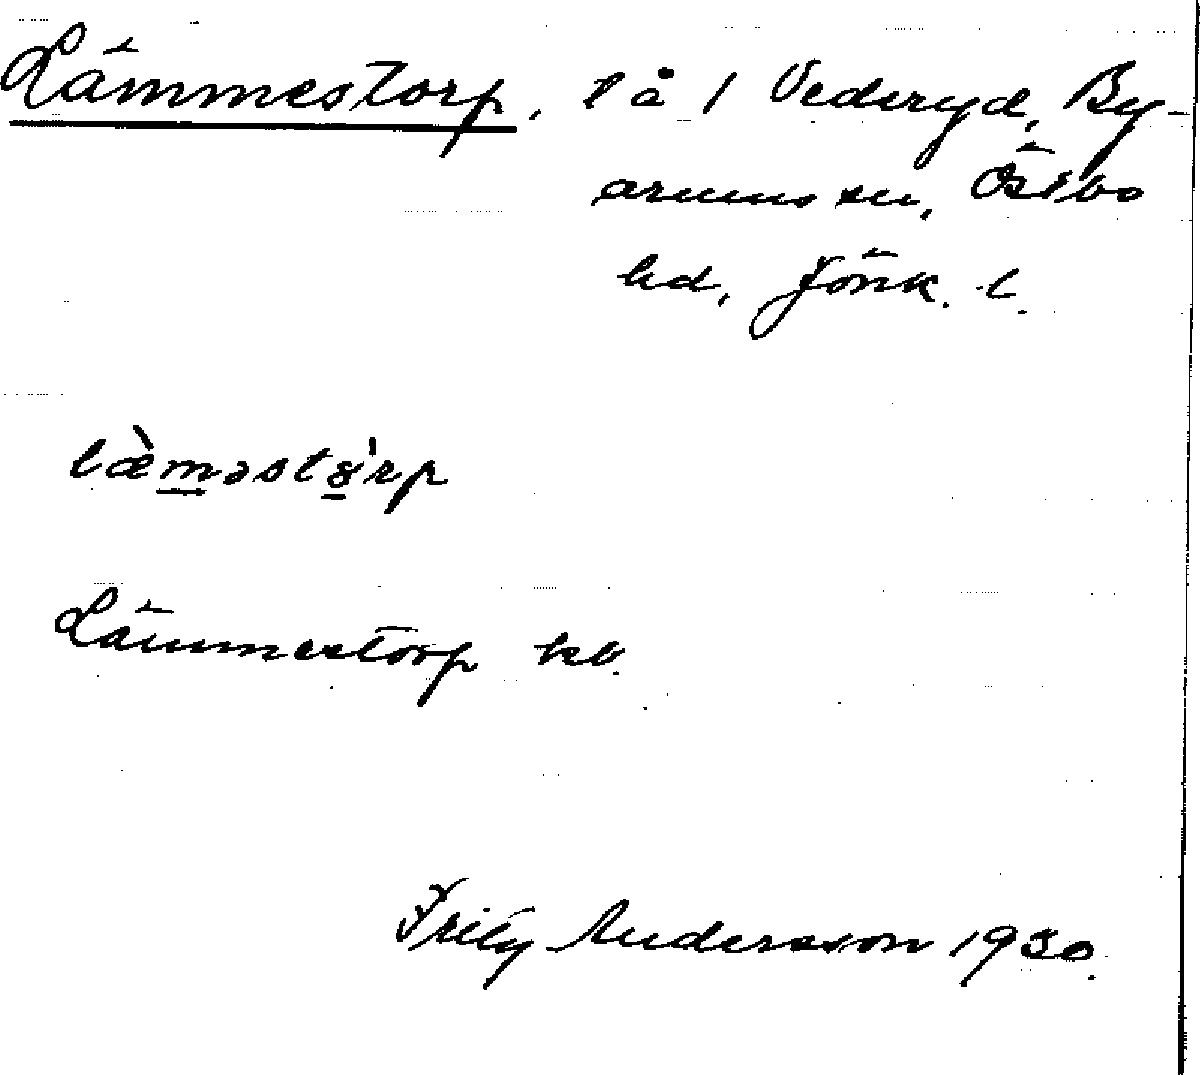 Lämmestorp, lå / Vederyd, By-
arums sn, Östbo
hd, Jönk. l.
læ̀məstꝏ̀rp
Lämmestorp kb.
Fritz Andersson 1930.